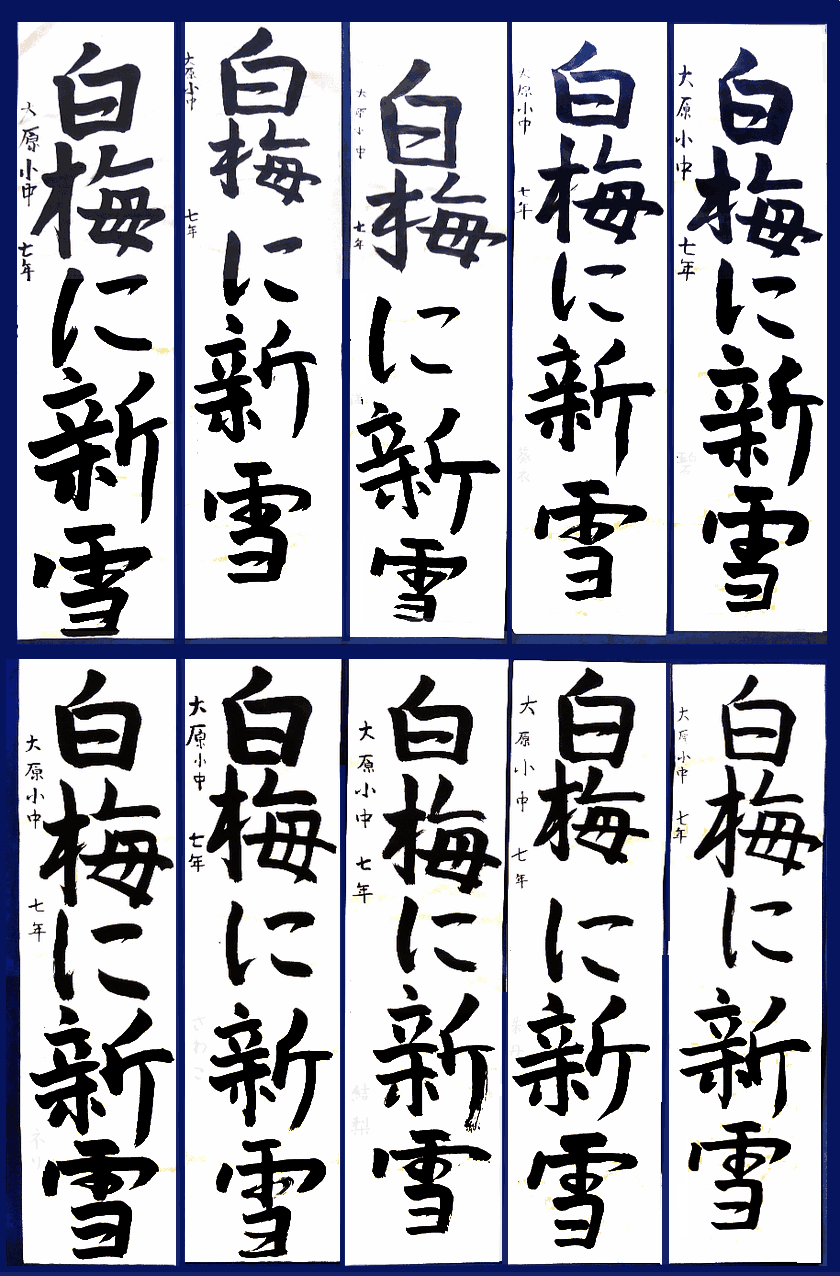 白梅に新雪
大原小中 七年
白梅に新雪
大原小中 七年
白梅に新雪
大原小中 七年
白梅に新雪
大原小中 七年
白梅に新雪
大原小中 七年
白梅に新雪
大原小中 七年
白梅に新雪
大原小中 七年
白梅に新雪
大原小中 七年
白梅に新雪
大原小中 七年
白梅に新雪
大原小中 七年